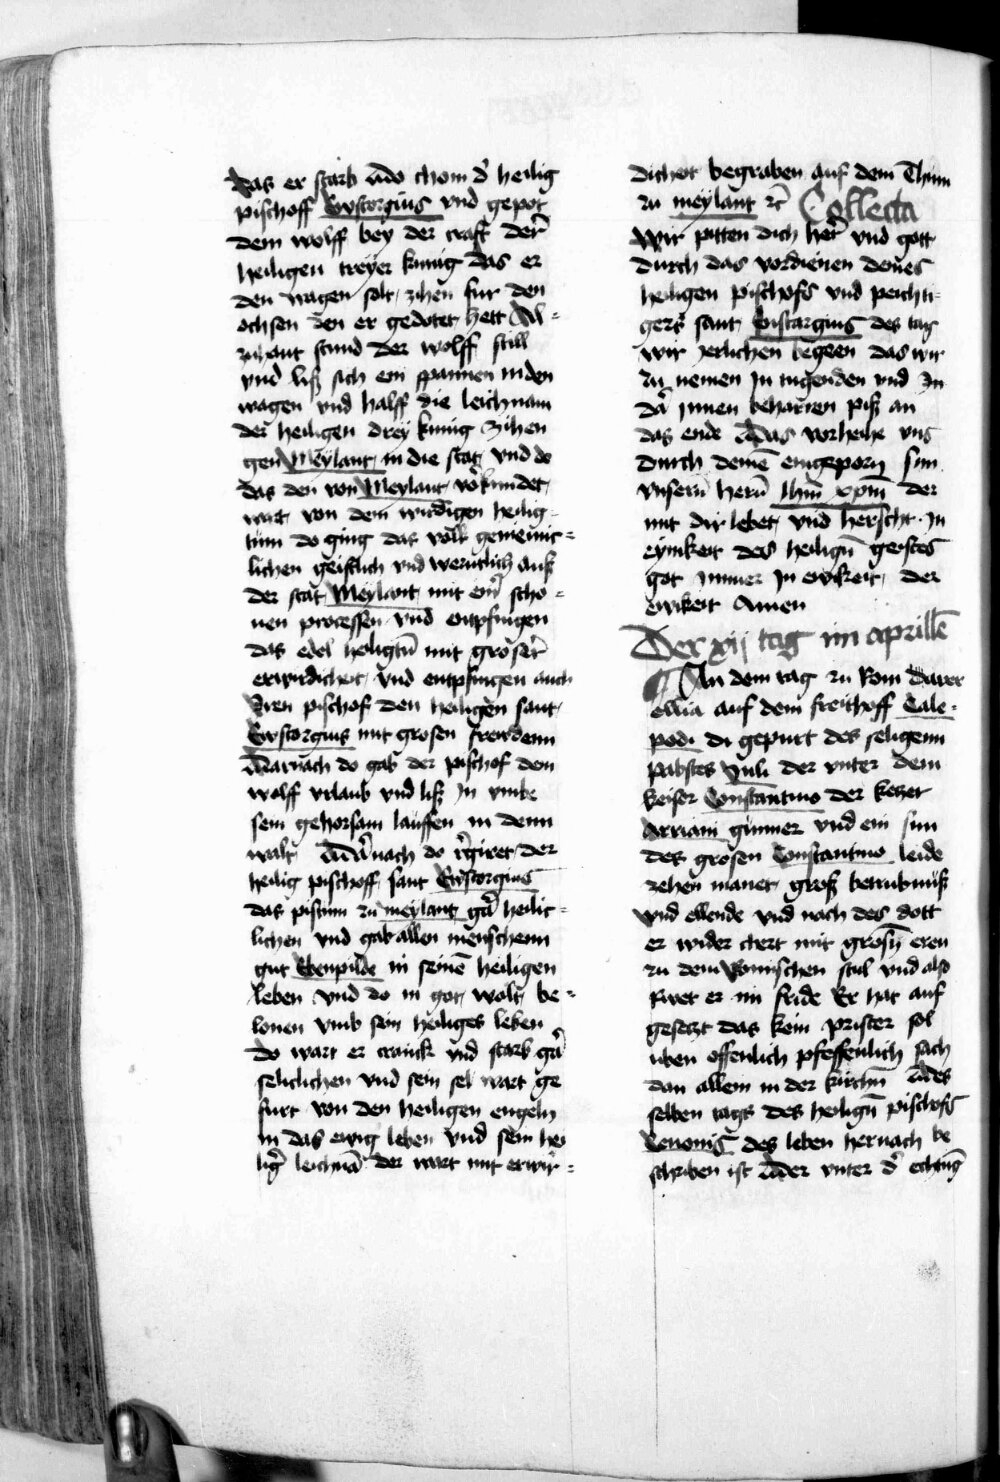 das er starb vndo chom d' heilig
pischoff Eustorgius vnd gepot
dem wolff bey der craft der
heiligen treyer kunig das er
den wagen solt zihen fur den
ochsen den er gedotet hett Al=
zuhant stund der wolff still
vnd liß sich ein spannen in den
wagen vnd halff die leichnam
der heiligen drey kunig zihen
gen Meylant in die stat vnd do
das den von Meylant vorkundet
wart von dem wirdigen heilig
tum do ging das volk gemeinic=
lichen geistlich vnd werntlich auß
der stat Meylant mit einer scho=
nen processen vnd entpfingen
das edel heiligtum mit groser
erwirdicheit vnd entpfingen auch
iren pischof den heiligen sant
Eustorgius mit grosen frewdenn
Darnach do gab der pischof dem
wolff vrlaub vnd liß in vmbe
sein gehorsam lauffen in denn
walt Darnach do regiret der
heilig pischoff sant Eustorgius
das pistum zu meylant gar heilic=
lichen vnd gab allen menschenn
gut Ebenpilde in seinem heiligen
leben vnd do in got wolt be=
lonen vmb sein heiliges leben
do wart er cranck vnd starb gar
seliclichen vnd sein sel wart ge
furt von den heiligen engeln
in das ewig leben vnd sein hei
liger leichnam der wart mit erwir=
dicheit begraben auf dem Thum
zu meylant etc Collecta
Wir pitten dich herr vnd gott
durch das vordienen deines
heiligen pischofs vnd peichti=
gers sant Eustargius des tag
wir ierlichen begeen das wir
zu nemen in tugenden vnd in
dar innen beharren piß an
das ende Vnd das vorleihe vns
durch deinen eingeporn sun
vnsern hern Ihm xpm der
mit dir lebet vnd herscht in
eynikeit des heiligen geistes
got immer in ewikeit der
ewikeit Amen
Der xij tag im aprille
An dem tag zu Rom
auf dem freithoff Cale=
podi di gepurt des seligenn
pabstes Juli der vnter dem
keiser Constantino der ketzer
Arriani gunner vnd ein sun
des grosen Constantino leide
zehen manet groß betrubnuß
vnd ellende vnd nach des dott
er wider chert mit grosen eren
zu dem Romischen stul vnd also
furet er im fride Er hat auf
gesetzt das kein prister sol
uben offenlich pfeffenlich sach
dan allein in der kirchen Des
selben tags des heiligen pischofs
Zenonis des leben hernach be
schriben ist der vnter d' echtung